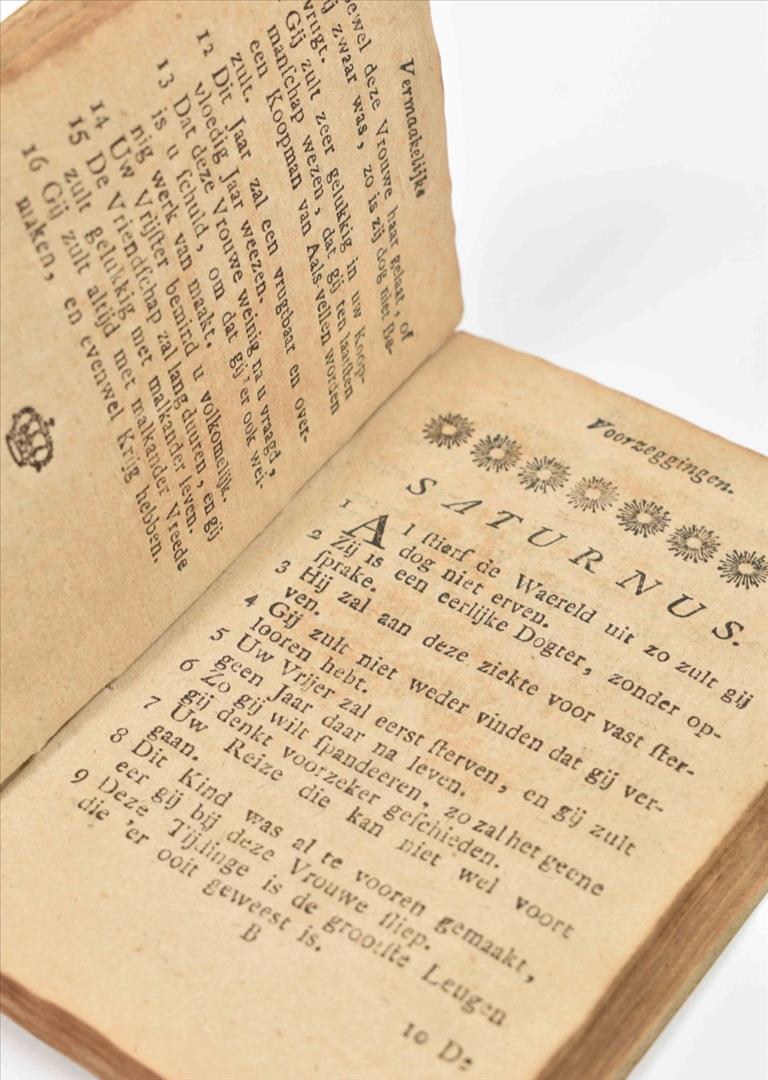 Vermaakelijke
ewel deze Vrouwe haar gelaat, of
ij zwaar was, zo is zij dog niet Be-
vrugt.
Gij zult zeer gelukkig in uw Koop-
manſchap wezen, dat gij ten laatſten
een Koopman van Aals-vellen worden
zult.
12 Dit Jaar zal een vrugtbaar en over-
vloedig Jaar weezen.
13 Dat deze Vrouwe weinig na u vraagd,
is u ſchuld, om dat gij 'er ook wei-
nig werk van maakt.
14 Uw Vrijſter bemind u volkomelijk.
15 De Vriendſchap zal lang duuren, en gij
zult gelukkig met malkander leven.
16 Gij zult altijd met malkander Vreede
maken, en evenwel Krijg hebben.
Voorzeggingen.
SATURNUS.
1 Al ſtierf de Waereld uit zo zult gij
dog niet erven.
2 Zij is een eerlijke Dogter, zonder op-
ſprake.
3 Hij zal aan deze ziekte voor vast ſter-
ven.
4 Gij zult niet weder vinden dat gij ver-
looren hebt.
5 Uw Vrijer zal eerst ſterven, en gij zult
geen Jaar daar na leven.
6 Zo gij wilt ſpandeeren, zo zal het geene
gij denkt voorzeker geſchieden.
7 Uw Reize die kan niet wel voort
gaan.
8 Dit Kind was al te vooren gemaakt,
eer gij bij deze Vrouwe ſliep.
9 Deze Tijdinge is de grootſte Leugen
die 'er ooit geweest is.
B
10 D: